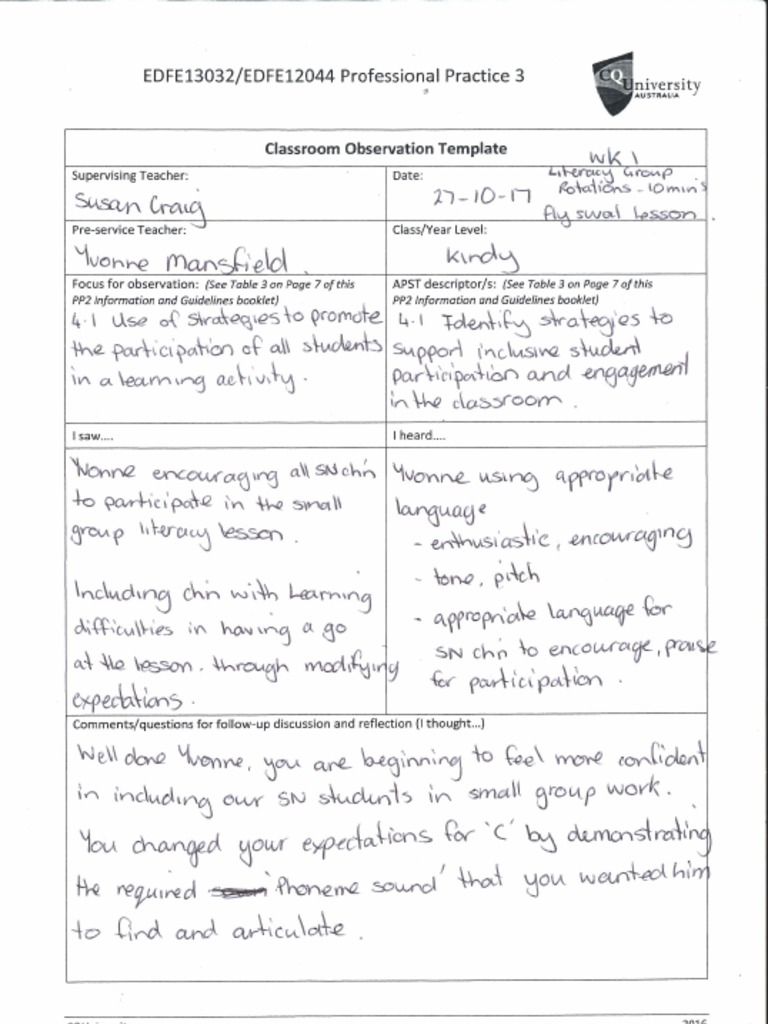 EDFE13032/EDFE12044 Professional Practice 3
CQUniversity
AUSTRALIA
Classroom Observation Template
Supervising Teacher:
Susan Craig
Date:
27-10-17
WK 1
Literacy Group
Rotations - 10 min's
fly swat Lesson.
Pre-service Teacher:
Yvonne Mansfield.
Class/Year Level:
Kindy
Focus for observation: (See Table 3 on Page 7 of this
PP2 Information and Guidelines booklet)
4.1 Use of strategies to promote
the participation of all students
in a learning activity.
APST descriptor/s: (See Table 3 on Page 7 of this
PP2 Information and Guidelines booklet)
4.1 Identify strategies to
support inclusive student
participation and engagement
in the classroom.
I saw....
Yvonne encouraging all SN chn
to participate in the small
group literacy lesson.
Including chn with Learning
difficulties in having a go
at the lesson. through modifying
expectations.
I heard....
Yvonne using appropriate
language
- enthusiastic, encouraging
- tone, pitch
- appropriate language for
SN chn to encourage, praise
for participation.
Comments/questions for follow-up discussion and reflection (I thought...)
Well done Yvonne, you are beginning to feel more confident
in including our SN students in small group work.
You changed your expectations for 'C' by demonstrating
the required 'Phoneme sound' that you wanted him
to find and articulate.